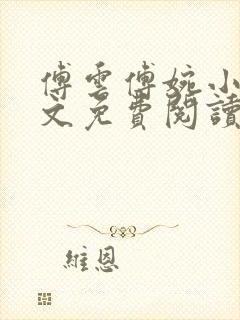 傅雲傅婉小
文免費閱讀
維恩